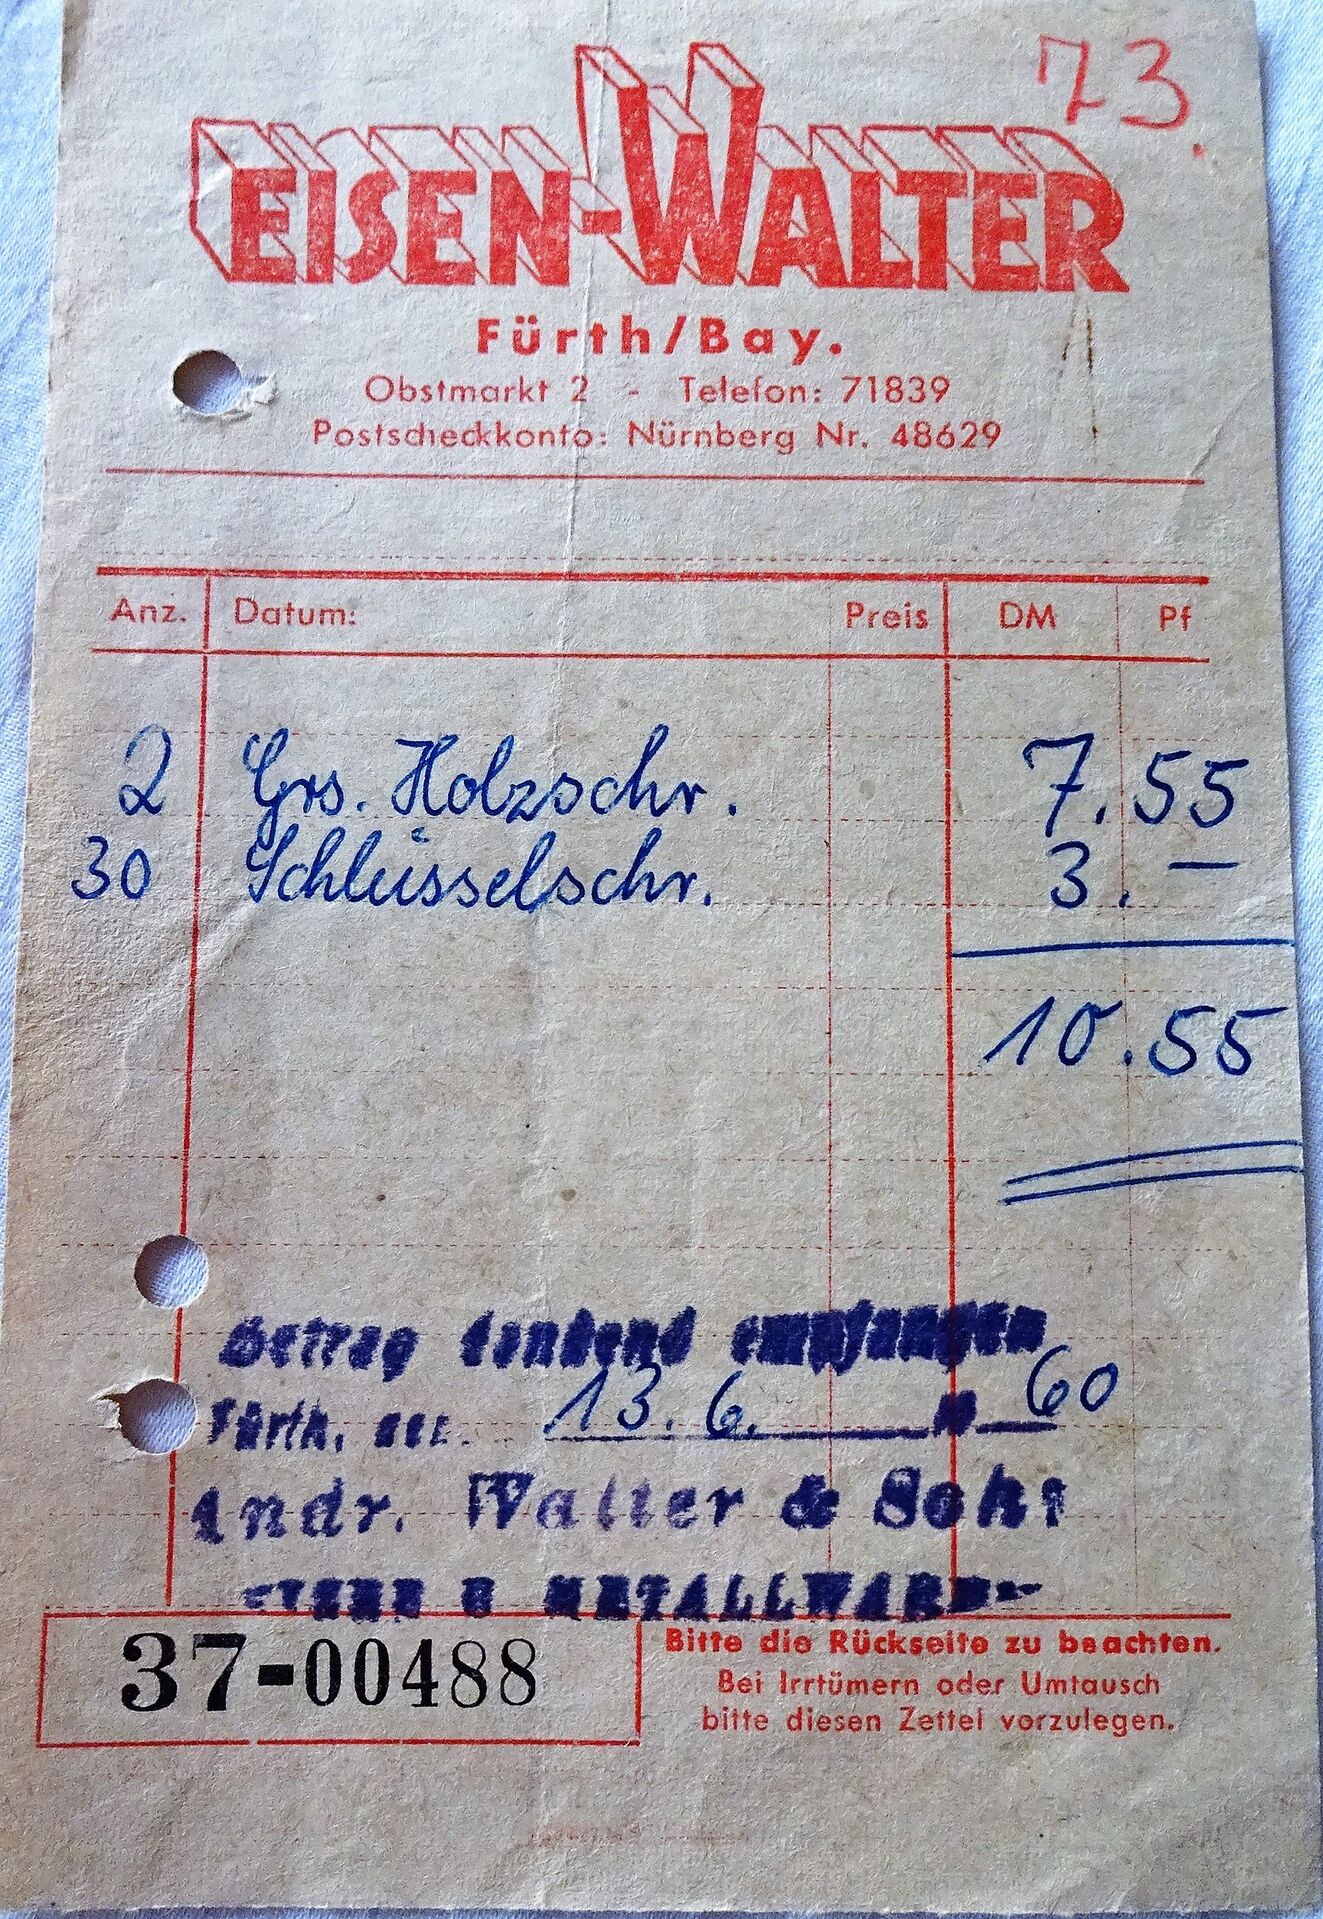 73
EISEN-WALTER
Fürth/Bay.
Obstmarkt 2 - Telefon: 71839
Postscheckkonto: Nürnberg Nr. 48629
Anz. Datum: Preis DM Pf
2 Grs. Holzschr. 7.55
30 Schlüsselschr. 3.—
10.55
Betrag dankend empfangen
Fürth, den 13.6. 60
Andr. Walter & Sohn
EISEN U METALLWAREN
37-00488
Bitte die Rückseite zu beachten.
Bei Irrtümern oder Umtausch
bitte diesen Zettel vorzulegen.